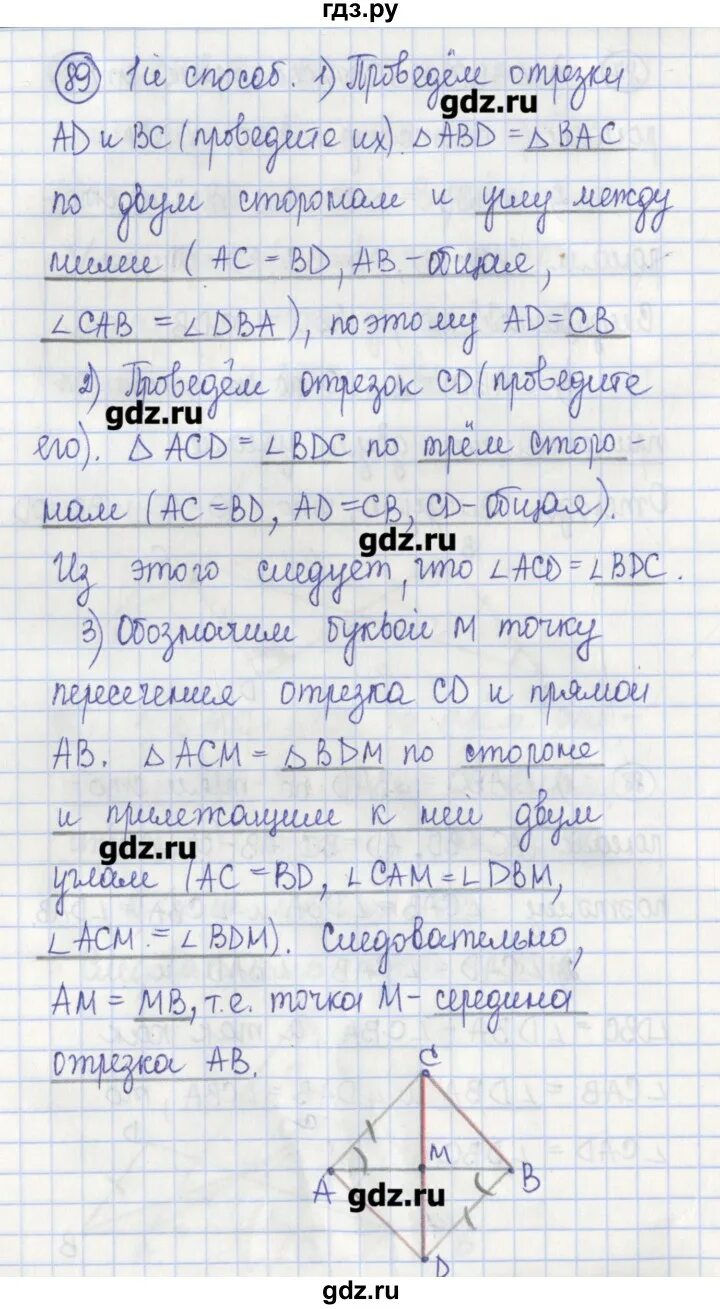 гдз.ру
89 1й способ. 1) Проведём отрезки
gdz.ru
AD и BC (проведите их). △ABD = △BAC
по двум сторонам и углу между
ними (AC = BD, AB - общая,
∠CAB = ∠DBA), поэтому AD = CB
2) Проведём отрезок CD (проведите
gdz.ru
его). △ ACD = ∠BDC по трём сторо-
нам (AC = BD, AD = CB, CD - общая).
gdz.ru
Из этого следует, что ∠ACD = ∠BDC.
3) Обозначим буквой M точку
пересечения отрезка CD и прямой
AB. △ACM = △BDM по стороне
и прилежащим к ней двум
gdz.ru
углам (AC = BD, ∠CAM = ∠DBM,
∠ACM = ∠BDM). Следовательно,
AM = MB, т.е. точка M - середина
отрезка AB.
C
M
A B
gdz.ru
D
gdz.ru